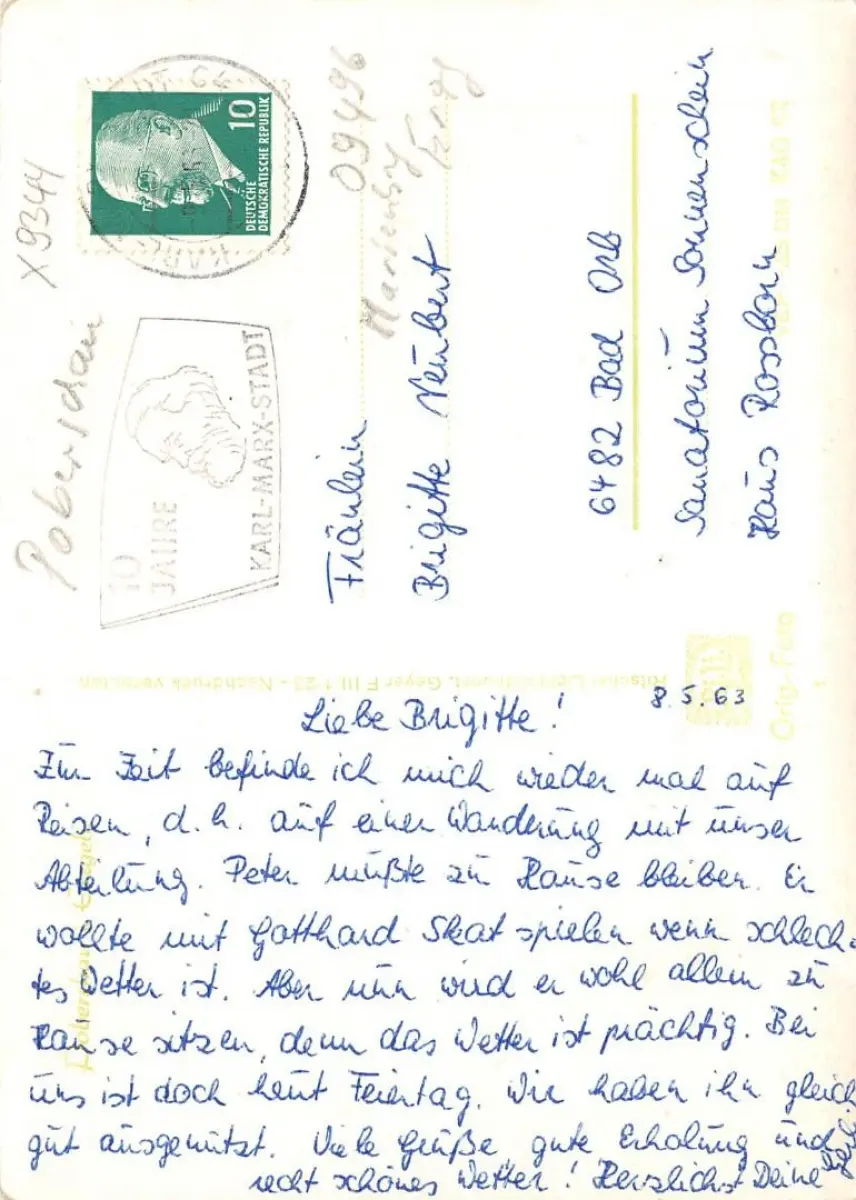 Liebe Brigitte!
8.5.63
Zur Zeit befinde ich mich wieder mal auf
Reisen, d.h. auf einer Wanderung mit unser
Abteilung. Peter mußte zu Hause bleiben. Er
wollte mit Gotthard Skat spielen wenn schlech-
tes Wetter ist. Aber nun wird er wohl allein zu
Hause sitzen, denn das Wetter ist prächtig. Bei
uns ist doch heut Feiertag. Wir haben ihn gleich
gut ausgenützt. Viele Grüße, gute Erholung und
recht schönes Wetter! Herzlichst Deine
Fräulein
Brigitte Neubert
6482 Bad Orb
Sanatorium Sonnenschein
Haus Rossborn
Pobershau
X9344
09496
Marienbg
Erzg
10 JAHRE
KARL-MARX-STADT
10
DEUTSCHE
DEMOKRATISCHE REPUBLIK
Geyer F III 1/23 - Nachdruck verboten
Orig.-Foto